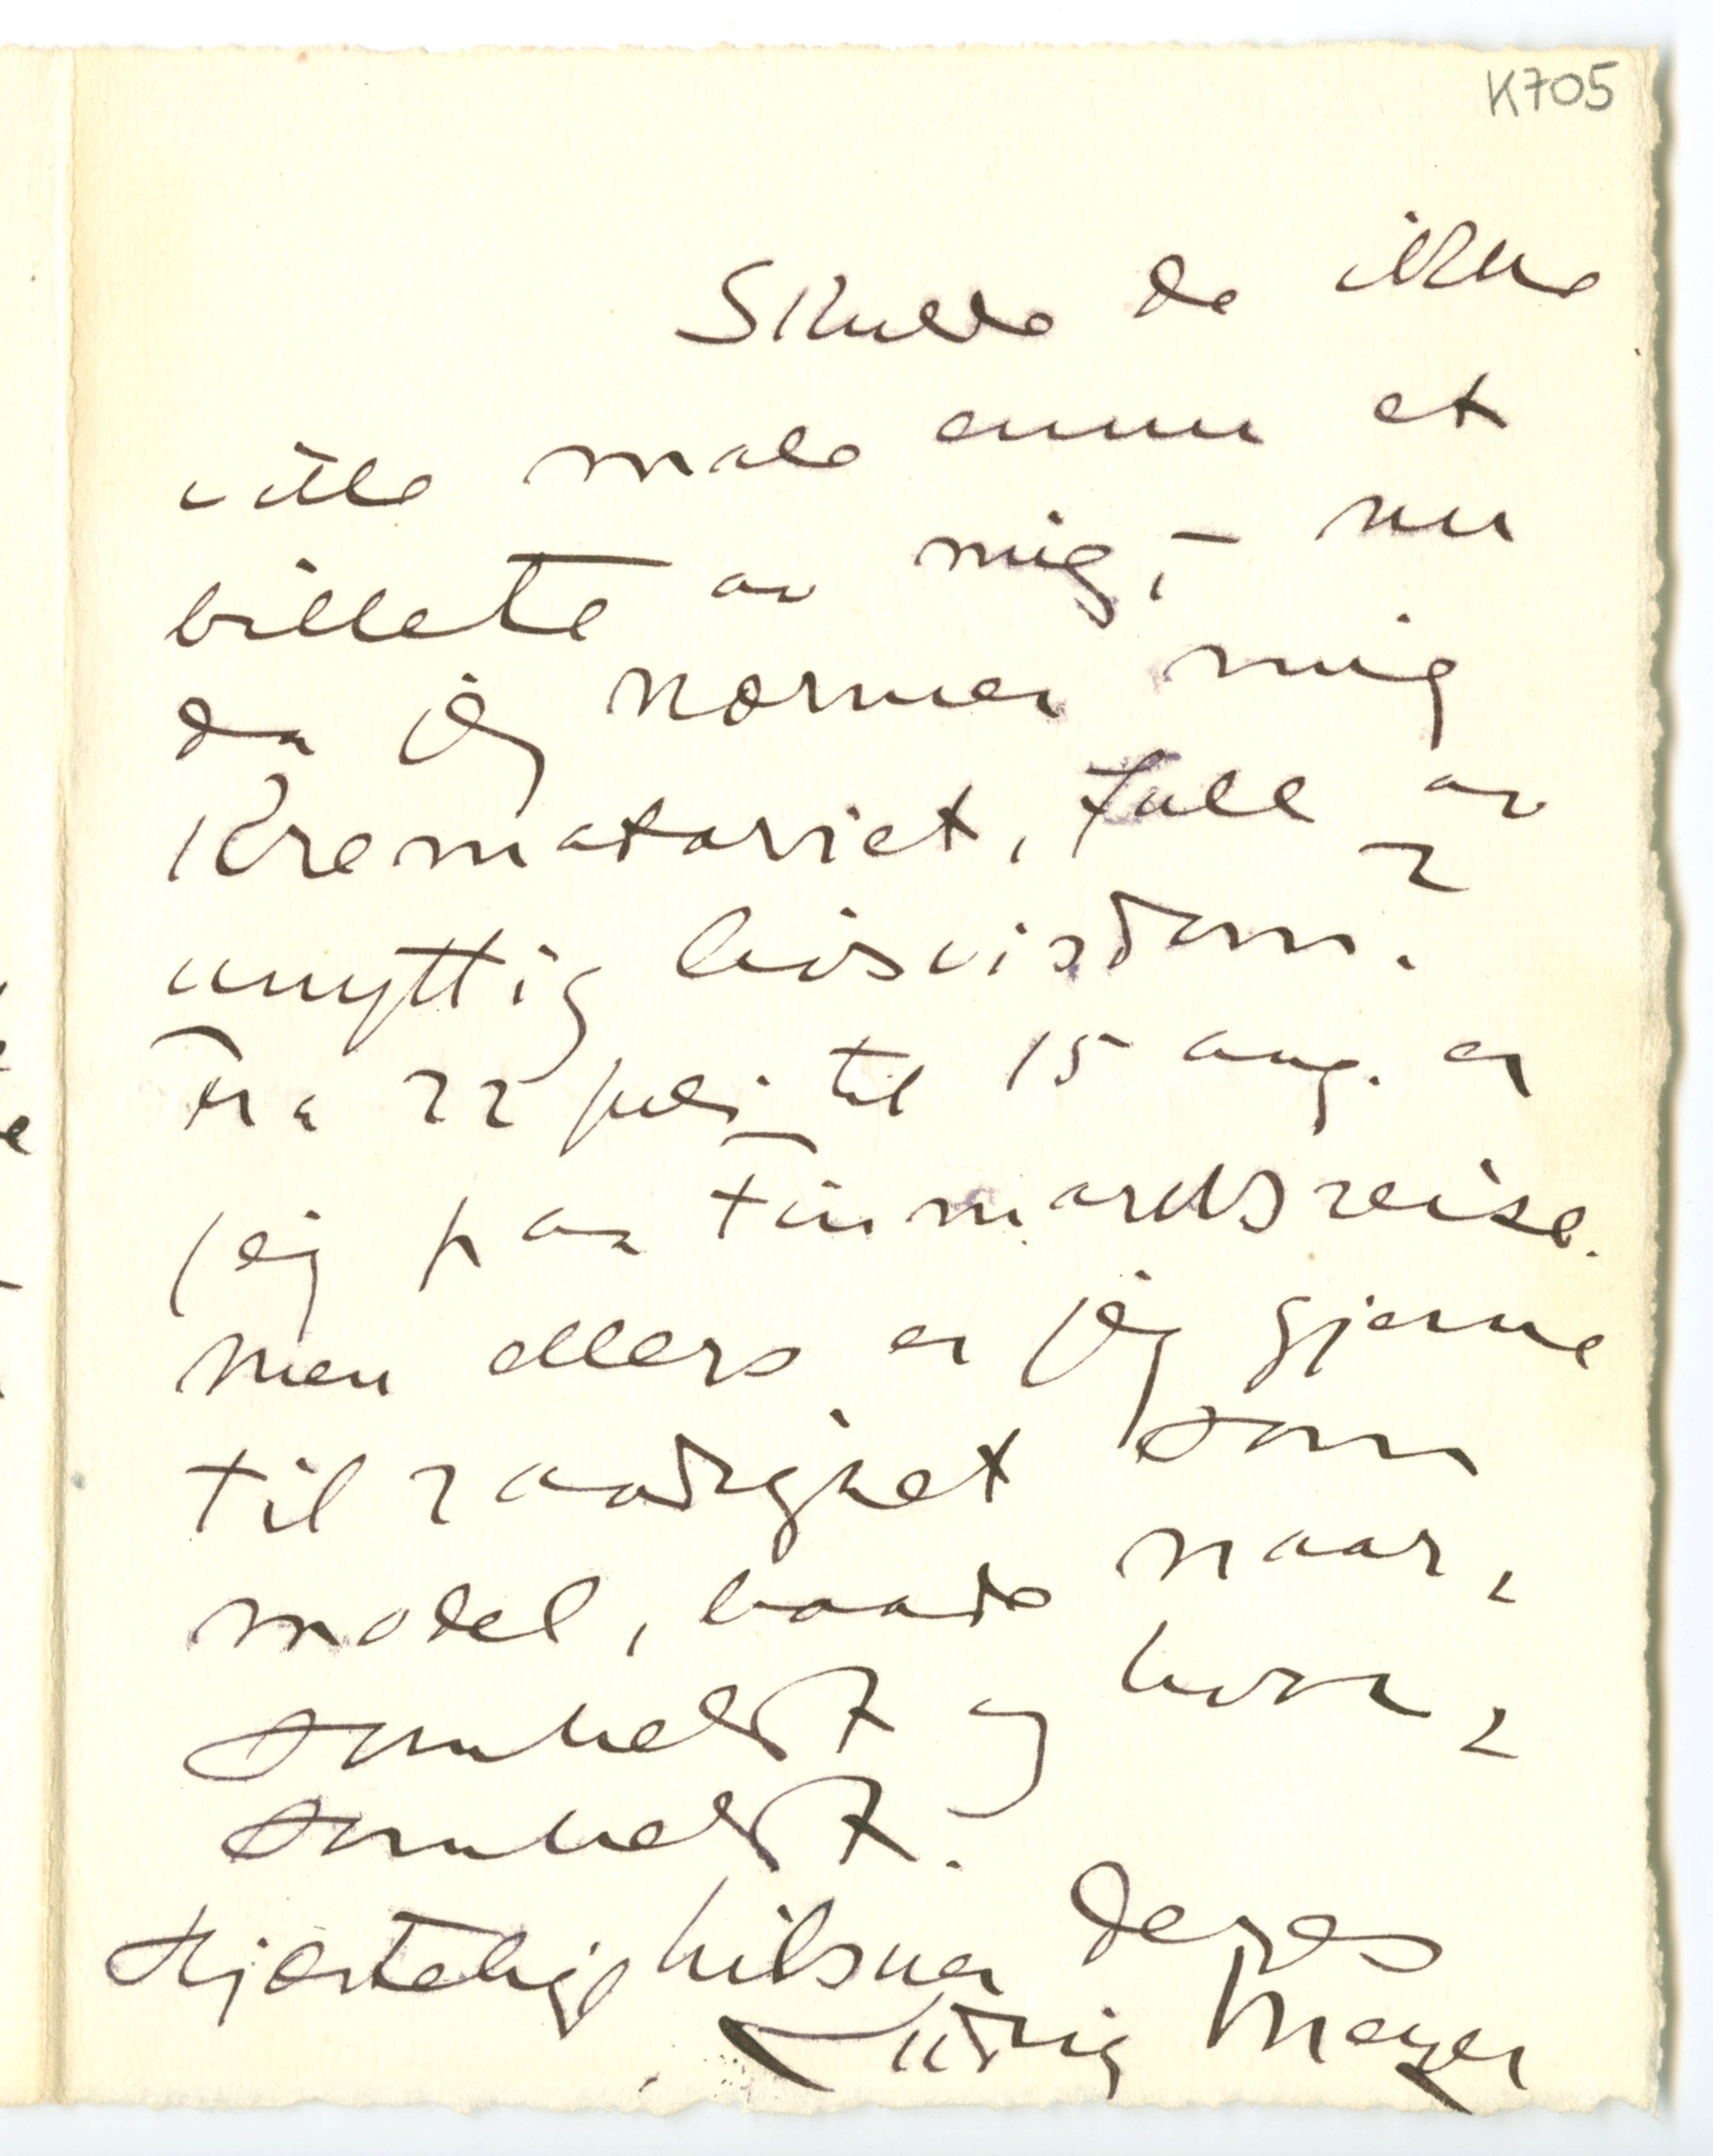 K705
Skulde de ikke
ville male ennu et
billete av mig, – nu
da jeg nærmer mig
Krematoriet, full av
unyttig livsvisdom?
Fra 22 juli til 15 aug. er
jeg paa Finmarksreise.
men ellers er jeg gjerne
til raadighet som
model, baade naar-
somhelst og hvor-
somhelst.
Hjærtelige hilsner Deres
Ludvig Meyer